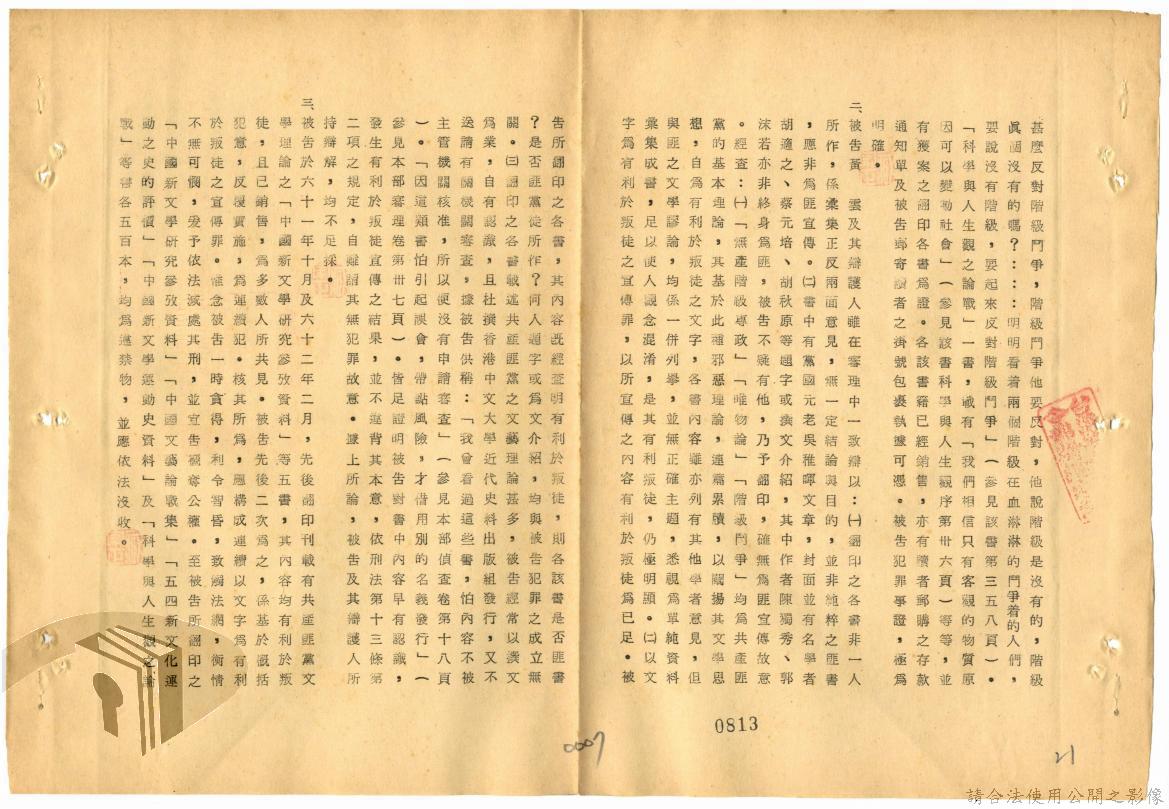 甚麽反對階級鬥爭,階級鬥爭他要反對,他說階級是沒有的,階級
眞個沒有的嗎?:::明明看着兩個階級在血淋淋的鬥爭着的人們,
要說沒有階級,要起來反對階級鬥爭」(參見該書第三五八頁)。
「科學與人生觀之論戰」一書,載有「我們相信只有客觀的物質原
因可以變動社會」(參見該書科學與人生觀序第卅六頁)等等,並
有獲案之翻印各書爲證。各該書籍已經銷售,亦有讀者郵購之存款
通知單及被告郵寄讀者之掛號包裹執據可憑。被告犯罪事證,極爲
明確。
二、被告黃 雲及其辯護人雖在審理中一致辯以:㈠翻印之各書非一人
所作,係彙集正反兩面意見,無一定結論與目的,並非純粹之匪書
,應非爲匪宣傳。㈡書中有黨國元老吳稚暉文章,封面並有名學者
胡適之、蔡元培、胡秋原等題字或撰文介紹,其中作者陳獨秀、郭
沫若亦非終身爲匪,被告不疑有他,乃予翻印,確無爲匪宣傳故意
。經查:㈠「無產階級專政」「唯物論」「階級鬥爭」均爲共產匪
黨的基本理論,其基於此種邪惡理論,連篇累牘,以闡揚其文學思
想,自爲有利於叛徒之文字,各書內容雖亦列有其他學者意見,但
與匪之文學謬論,均係一併列擧,並無正確主題,悉視爲單純資料
彙集成書,足以使人觀念混淆,是其有利叛徒,仍極明顯。㈡以文
字爲有利於叛徒之宣傳罪,以所宣傳之內容有利於叛徒爲已足。被
告所翻印之各書,其內容既經查明有利於叛徒,則各該書是否匪書
?是否匪黨徒所作?何人題字或爲文介紹,均與被告犯罪之成立無
關。㈢翻印之各書載述共產匪黨之文藝理論甚多,被告經常以撰文
爲業,自有認識,且杜撰香港中文大學近代史料出版組發行,又不
送請有關機關審查,據被告供稱:「我曾看過這些書,怕內容不被
主管機關核准,所以便沒有申請審查」(參見本部偵查卷第十八頁
)。「因這類書怕引起誤會,帶點風險,才借用別的名義發行」(
參見本部審理卷第卅七頁)。皆足證明被告對書中內容早有認識,
發生有利於叛徒宣傳之結果,並不違背其本意,依刑法第十三條第
二項之規定,自難謂其無犯罪故意。據上所論,被告及其辯護人所
持辯解,均不足採。
三、被告於六十一年十月及六十二年二月,先後翻印刊載有共產匪黨文
學理論之「中國新文學研究參攷資料」等五書,其內容均有利於叛
徒,且已銷售,爲多數人所共見。被告先後二次爲之,係基於概括
犯意,反覆實施,爲連續犯。核其所爲,應構成連續以文字爲有利
於叛徒之宣傳罪。惟念被告一時貪得,利令智昏,致觸法網,衡情
不無可憫,爰予依法減處其刑,並宣告褫奪公權。至被告所翻印之
「中國新文學研究參攷資料」「中國文藝論戰集」「五四新文化運
動之史的評價」「中國新文學運動史資料」及「科學與人生觀之論
戰」等書各五百本,均爲違禁物,並應依法沒收。
0813
0007
21
請合法使用公開之影像